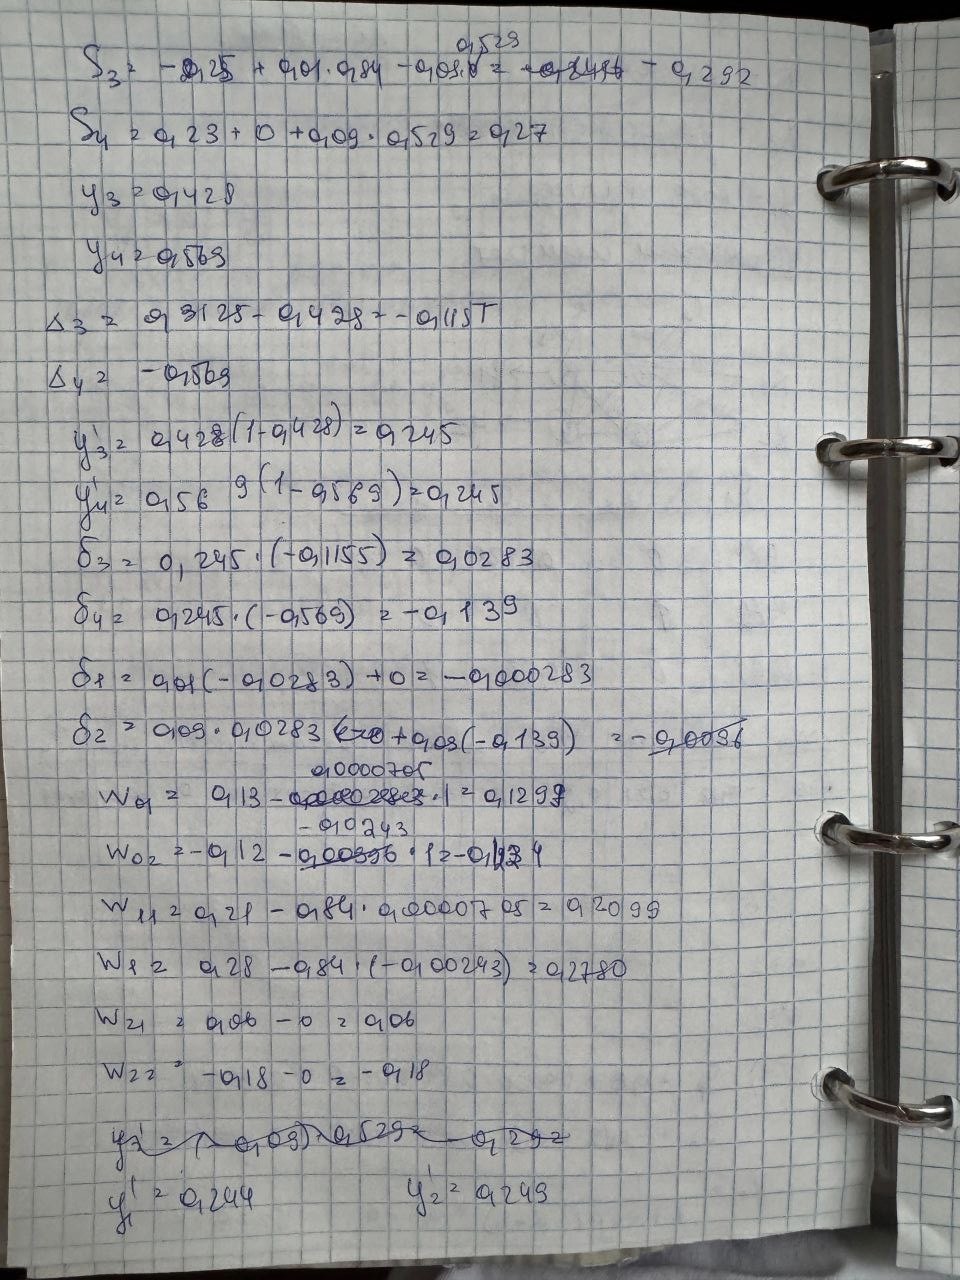 0,529
S3 = -0,25 + 0,01·0,84 - 0,09·0 = - 0,292
S4 = 0,23 + 0 + 0,09·0,529 = 0,27
y3 = 0,428
y4 = 0,569
Δ3 = 0,3125 - 0,428 = -0,1155
Δ4 = -0,569
y'3 = 0,428(1-0,428) = 0,245
y'4 = 0,569(1-0,569) = 0,245
δ3 = 0,245·(-0,1155) = 0,0283
δ4 = 0,245·(-0,569) = -0,139
δ1 = 0,01(-0,0283) + 0 = -0,000283
δ2 = 0,09·0,0283 + 0,09(-0,139) = -0,0096
0,0000705
W01 = 0,13 - ·1 = 0,1299
-0,0243
W02 = -0,12 - 0,00996·1 = -0,1234
W11 = 0,21 - 0,84·0,0000705 = 0,2099
W1 = 0,28 - 0,84·(-0,00243) = 0,2780
W21 = 0,06 - 0 = 0,06
W22 = -0,18 - 0 = -0,18
y'1 = 0,244 y'2 = 0,249